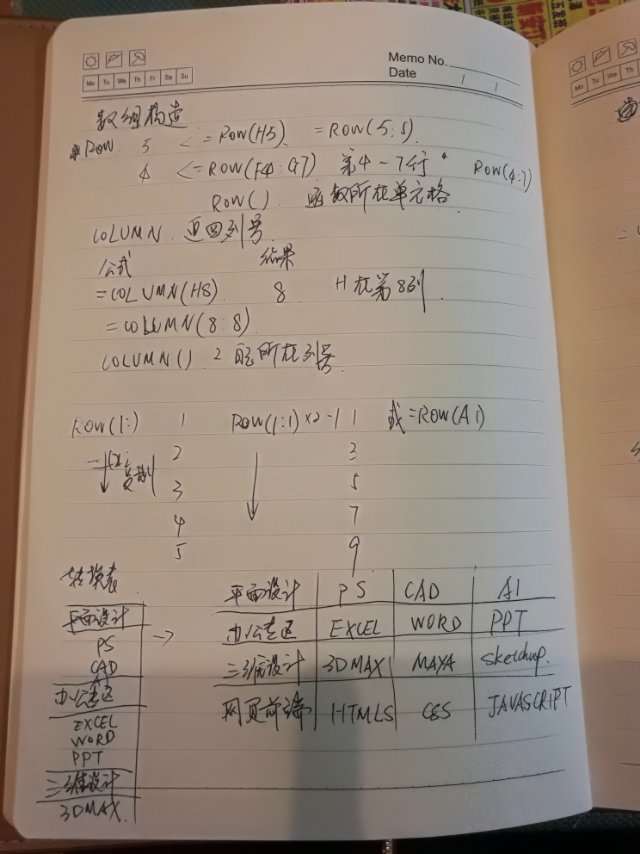 Memo No.
Date / /
Mo Tu We Th Fr Sa Su
数组构造
ROW 5 <=ROW(H5) =ROW(5:5)
4 <=ROW(F4:G7) 第4~7行 ROW(4:7)
ROW() 函数所在单元格
COLUMN 返回列号
公式 结果
=COLUMN(H8) 8 H在第8列
=COLUMN(8:8)
COLUMN() 所在列号
ROW(1:) 1 ROW(1:1)×2-1 1 或=ROW(A1)
2 3
复制 3 5
4 7
5 9
转换表
平面设计 PS CAD AI
办公专区 EXCEL WORD PPT
三维设计 3DMAX MAYA Sketchup.
网页前端 HTML5 CSS JAVASCRIPT
平面设计 →
PS
CAD
AI
办公专区
EXCEL
WORD
PPT
三维设计
3DMAX